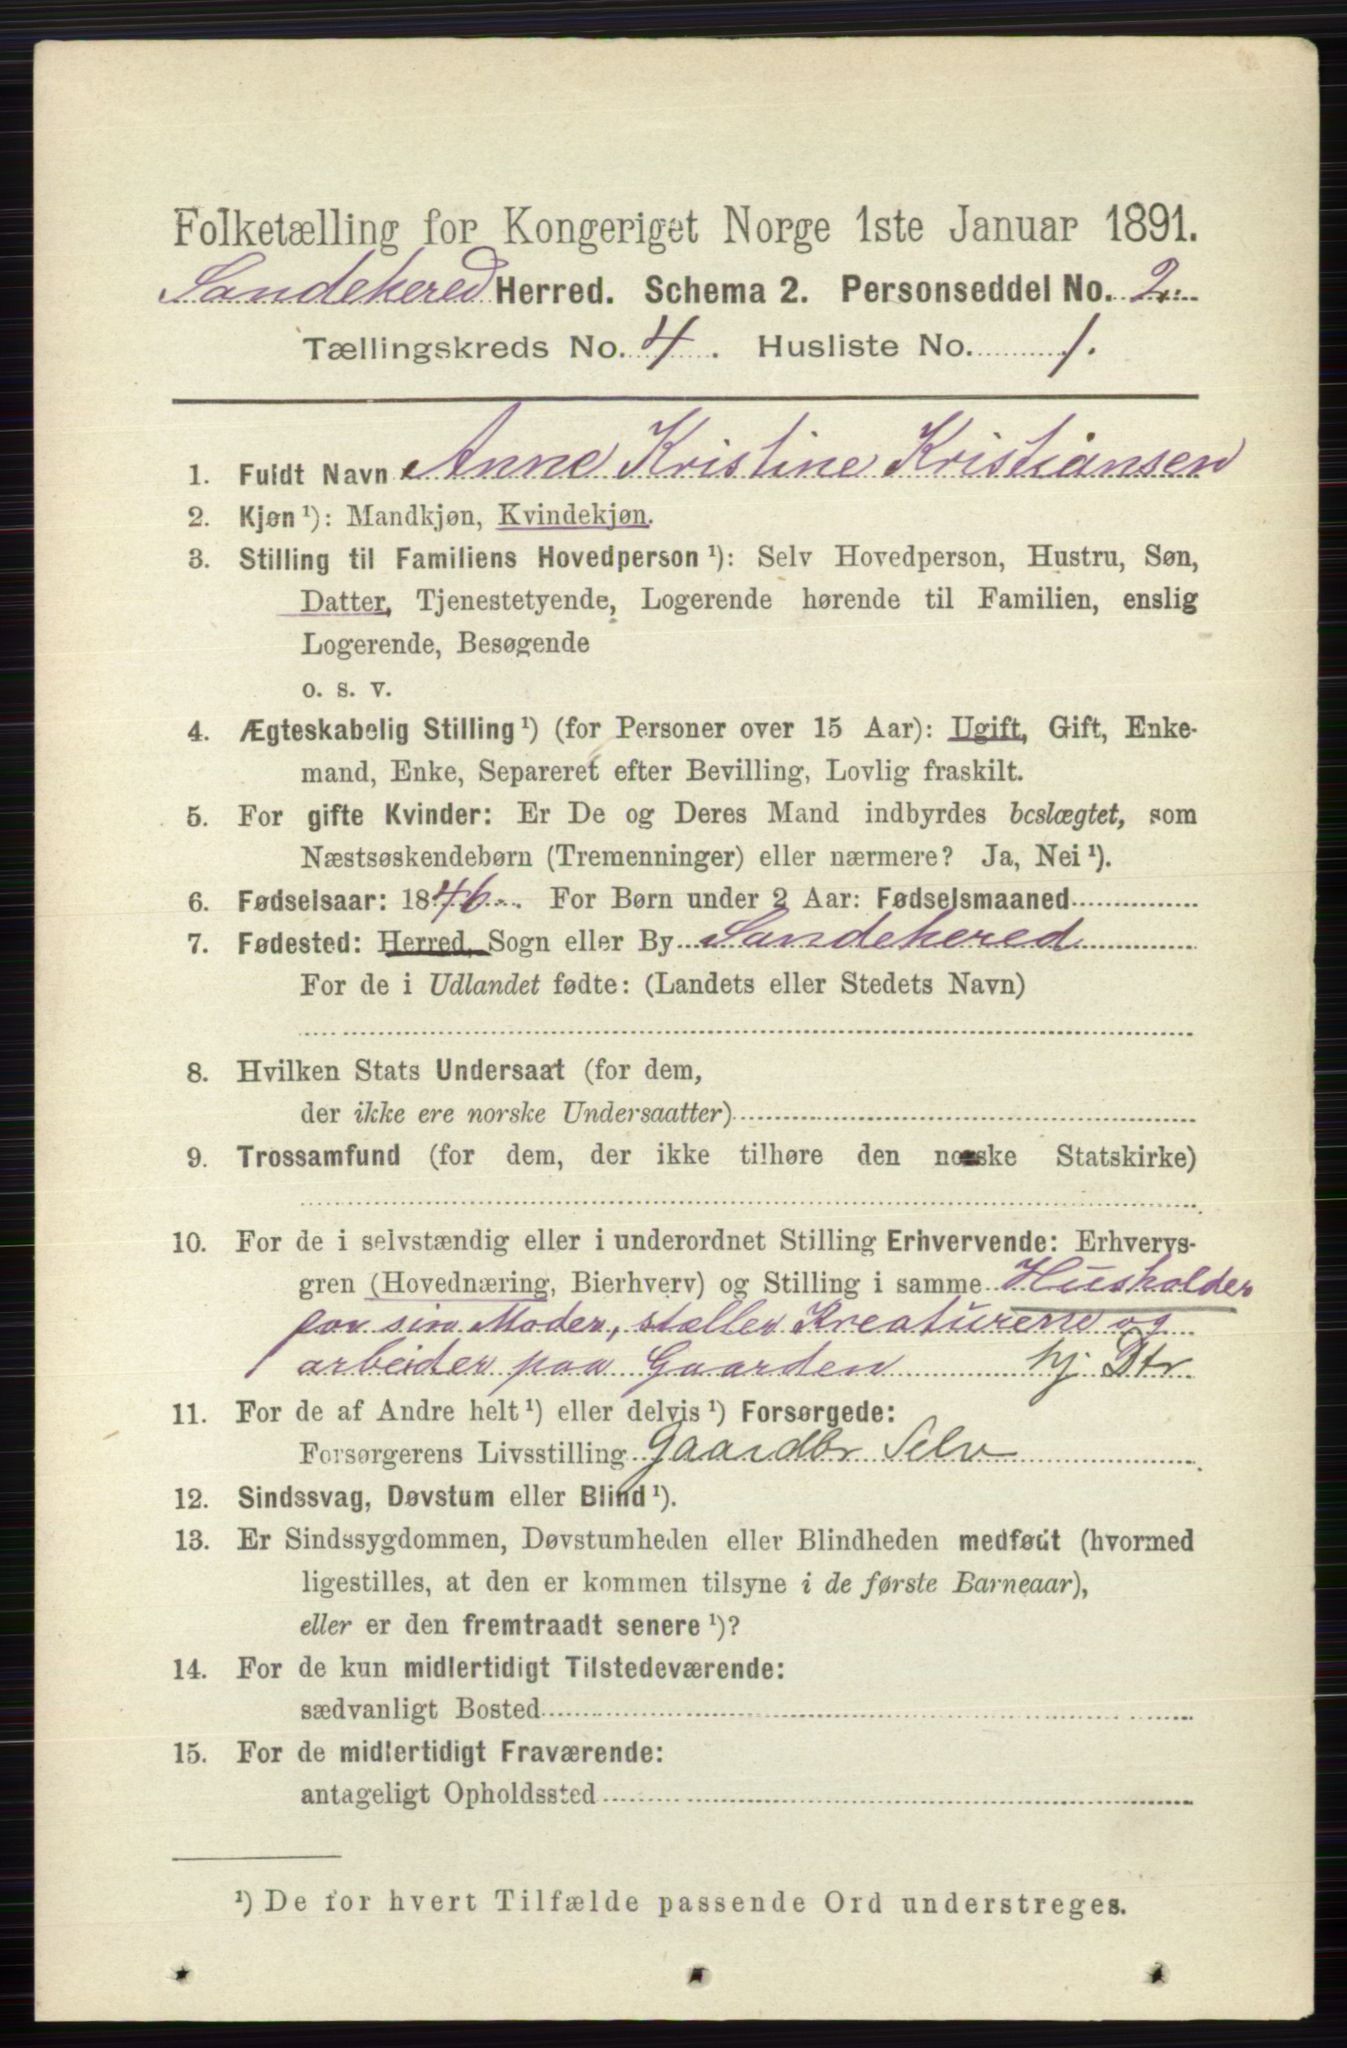 Folketælling for Kongeriget Norge 1ste Januar 1891.
Sandehered Herred. Schema 2. Personseddel No. 2.
Tællingskreds No. 4. Husliste No. 1.
1. Fuldt Navn Anne Kristine Kristiansen
2. Kjøn ¹): Mandkjøn, Kvindekjøn.
3. Stilling til Familiens Hovedperson ¹): Selv Hovedperson, Hustru, Søn,
Datter, Tjenestetyende, Logerende hørende til Familien, enslig
Logerende, Besøgende
o. s. v.
4. Ægteskabelig Stilling ¹) (for Personer over 15 Aar): Ugift, Gift, Enke-
mand, Enke, Separeret efter Bevilling, Lovlig fraskilt.
5. For gifte Kvinder: Er De og Deres Mand indbyrdes beslægtet, som
Næstsøskendebørn (Tremenninger) eller nærmere? Ja, Nei ¹).
6. Fødselsaar: 1846. For Børn under 2 Aar: Fødselsmaaned
7. Fødested: Herred, Sogn eller By Sandehered
For de i Udlandet fødte: (Landets eller Stedets Navn)
8. Hvilken Stats Undersaat (for dem,
der ikke ere norske Undersaatter)
9. Trossamfund (for dem, der ikke tilhøre den norske Statskirke)
10. For de i selvstændig eller i underordnet Stilling Erhvervende: Erhvervs-
gren (Hovednæring, Bierhverv) og Stilling i samme Husholder
for sin Moder, steller Kreaturerne og
arbeider paa Gaarden hj. Dtr
11. For de af Andre helt ¹) eller delvis ¹) Forsørgede:
Forsørgerens Livsstilling Gaardbr Selv
12. Sindssvag, Døvstum eller Blind ¹).
13. Er Sindssygdommen, Døvstumheden eller Blindheden medfødt (hvormed
ligestilles, at den er kommen tilsyne i de første Barneaar),
eller er den fremtraadt senere ¹)?
14. For de kun midlertidigt Tilstedeværende:
sædvanligt Bosted
15. For de midlertidigt Fraværende:
antageligt Opholdssted
¹) De for hvert Tilfælde passende Ord understreges.